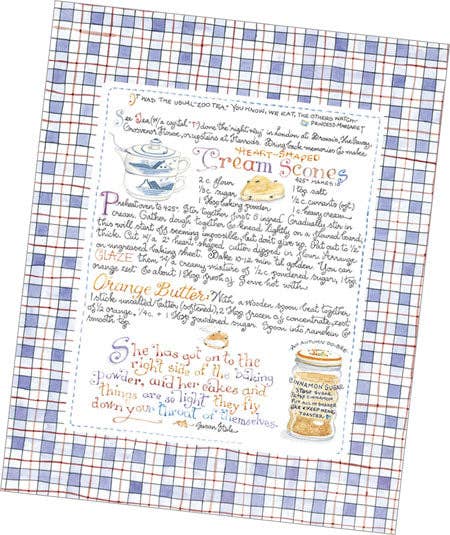 "It was the usual 'zoo tea.' You know, we eat, the others watch."
Princess Margaret
See Tea (w/a capital "T") done the "right way" in London at Brown's, The Savoy,
Grosvenor House, or upstairs at Harrods. Bring back memories to make
HEART-SHAPED
Cream Scones
425° MAKES 18
2 c. flour
1/4 c. sugar
1 Tbsp. baking powder
1/2 tsp. salt
1/2 c. currants (opt.)
1 c. heavy cream
Preheat oven to 425°. Stir together first 5 ingred. Gradually stir in
cream. Gather dough together & knead lightly on a floured board;
this will start off seeming impossible, but don't give up. Pat out to 1/2"
thick. Cut w/ a 2" heart-shaped cutter dipped in flour. Arrange
on ungreased baking sheet. Bake 10-12 min. til golden. You can
GLAZE them w/ a creamy mixture of 1/2 c. powdered sugar, 1 tsp.
orange zest & about 1 Tbsp. fresh oj. Serve hot with:
Orange Butter: With a wooden spoon beat together
1 stick unsalted butter (softened), 2 Tbsp. frozen oj concentrate, zest
of 1/2 orange, 1/4 c. + 1 Tbsp. powdered sugar. Spoon into ramekin &
smooth top.
She has got on to the
right side of the baking
powder, and her cakes and
things are so light they fly
down your throat of themselves.
Susan Hale
CINNAMON SUGAR